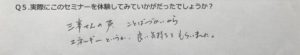 Q5.実際にこのセミナーを体験してみていかがだったでしょうか?
三幸さんの声 ことばづかいから
エネルギーというか、良い気持ちをもらいました。